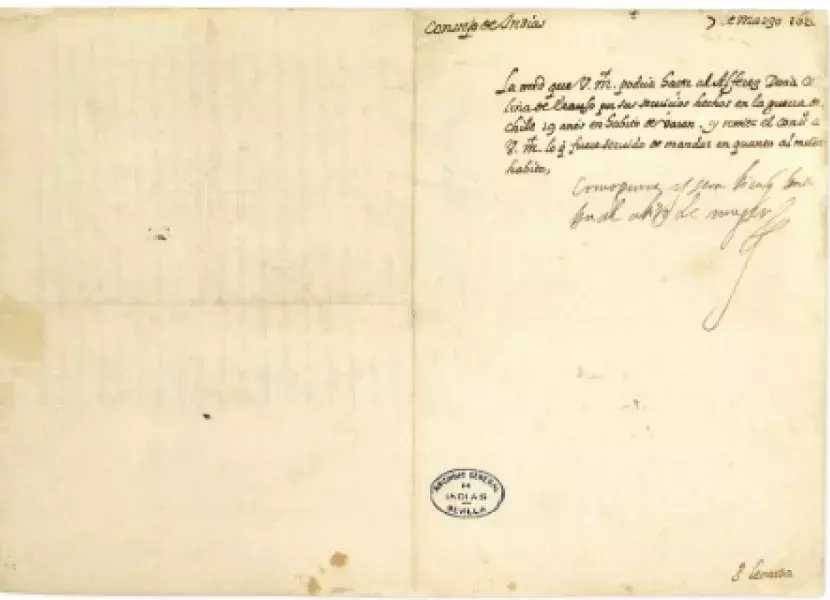 Consejo de Indias
7 de março 162
La mrd que V. Mᵈ. podria hacer al Alferez Doña Ca
lina de Erauso por sus seruicios hechos en la guerra de
chile 19 años en habito de varon. y remite el cons.º a
V. Mᵈ. lo q̃ fuere seruido de mandar en quanto al mudar
habito,
y sera bien
habito de muger
ARCHIVO GENERAL
DE
INDIAS
SEVILLA